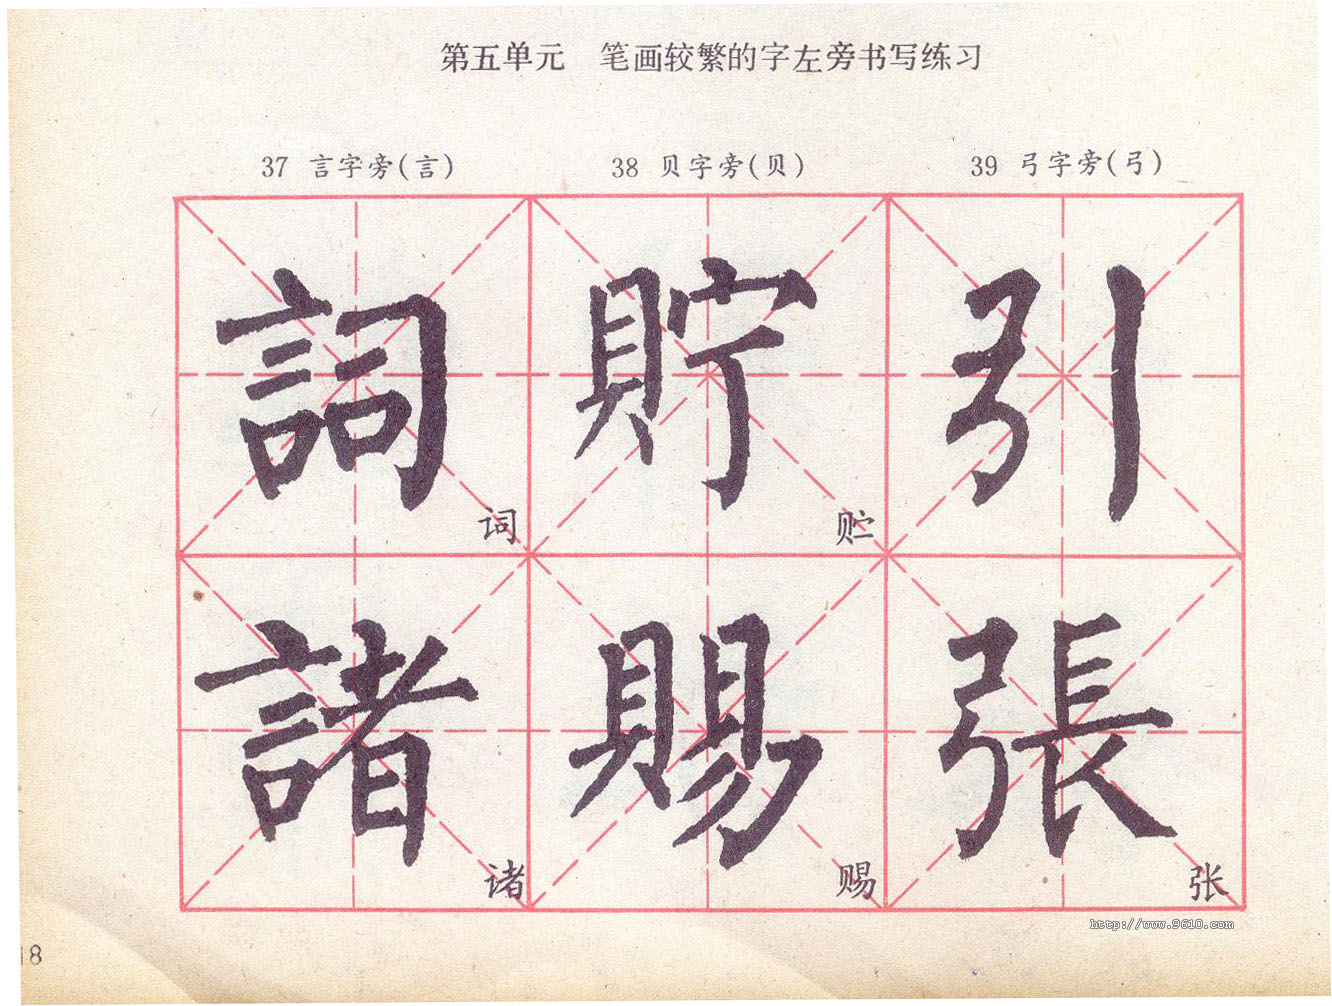 第五单元 笔画较繁的字左旁书写练习
37 言字旁(言) 38 贝字旁(贝) 39 弓字旁(弓)
詞 貯 引
词 贮
諸 賜 張
诸 赐 张
http://www.9610.com/
18